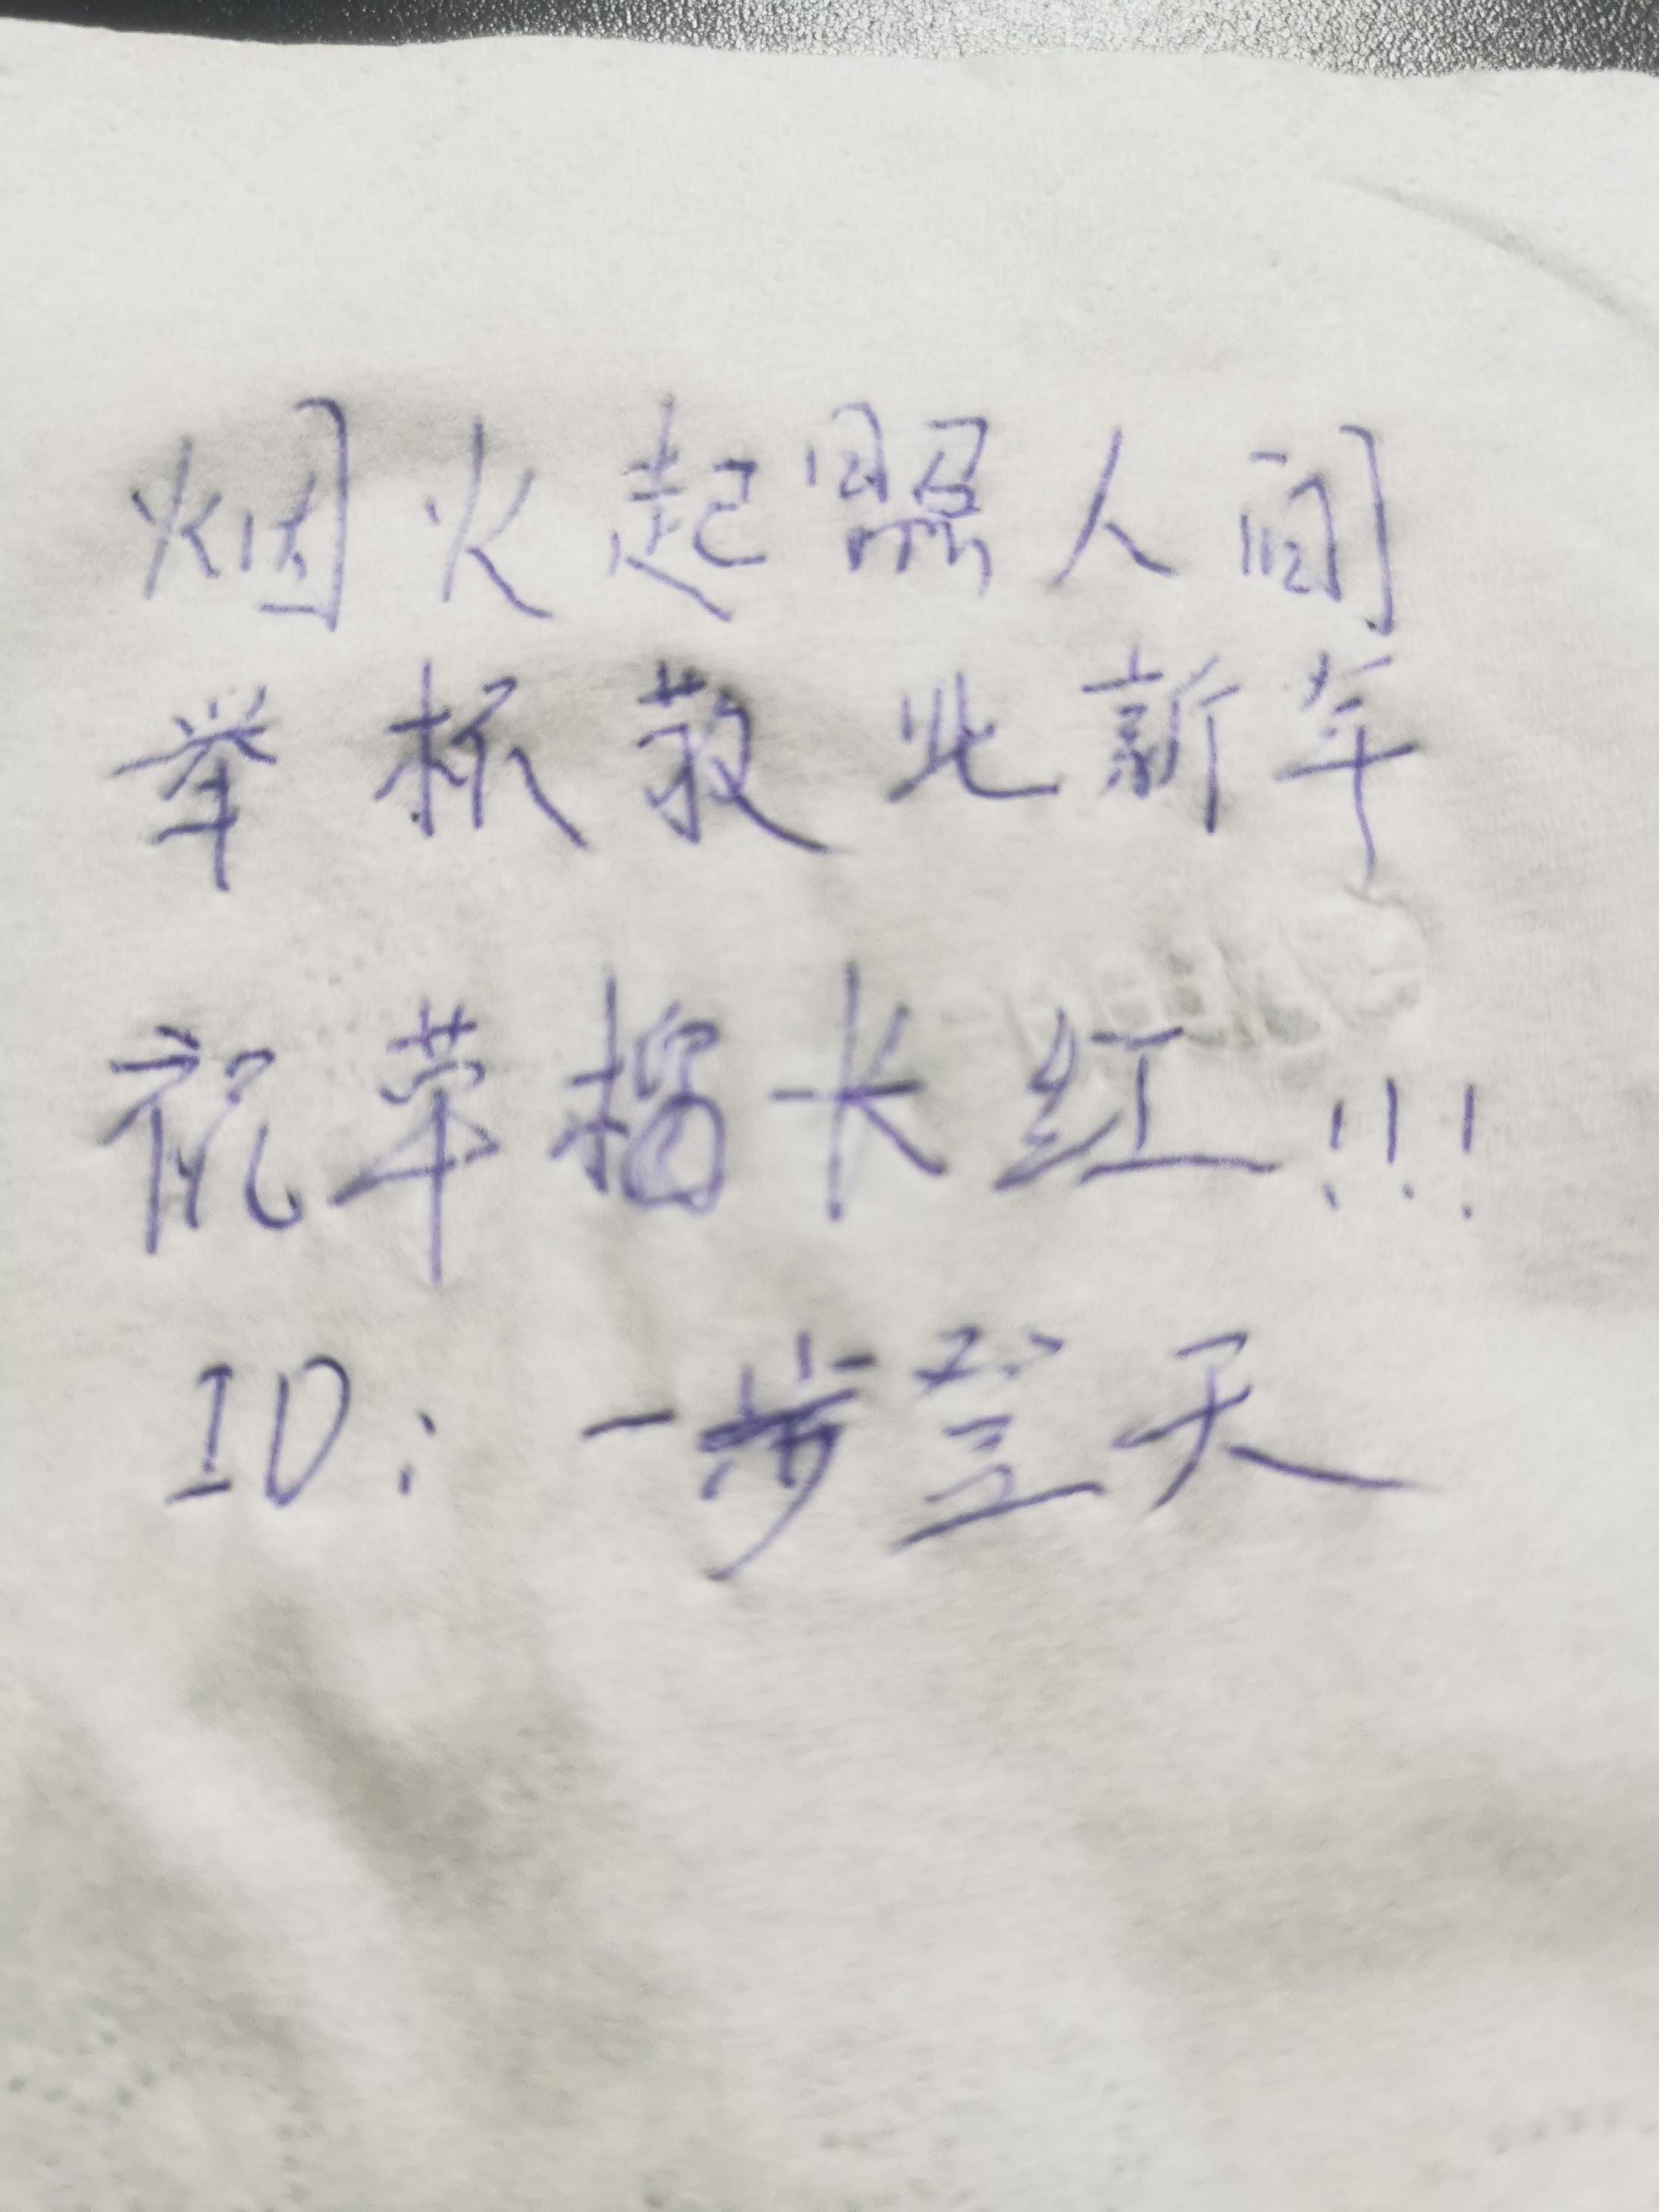 烟火起照人间
举杯敬此新年
祝草榴长红!!!
ID:一步登天